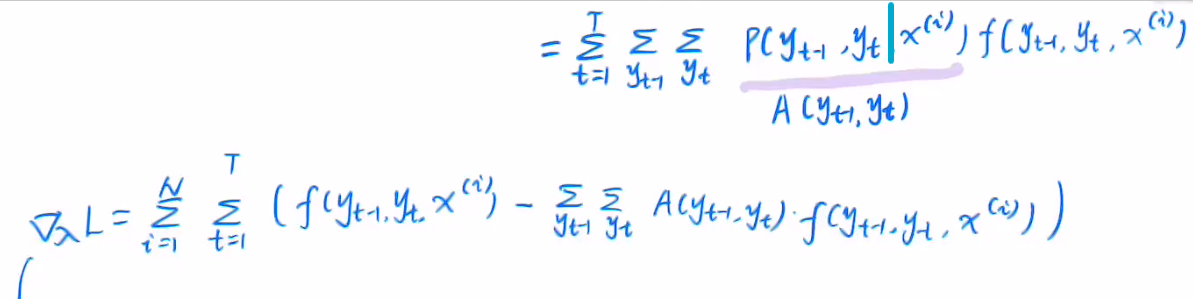 = \sum_{t=1}^{T} \sum_{y_{t-1}} \sum_{y_t} P(y_{t-1}, y_t | x^{(i)}) f(y_{t-1}, y_t, x^{(i)})
A(y_{t-1}, y_t)
\nabla_\lambda L = \sum_{i=1}^{N} \sum_{t=1}^{T} (f(y_{t-1}, y_t, x^{(i)}) - \sum_{y_{t-1}} \sum_{y_t} A(y_{t-1}, y_t) \cdot f(y_{t-1}, y_t, x^{(i)}))
(